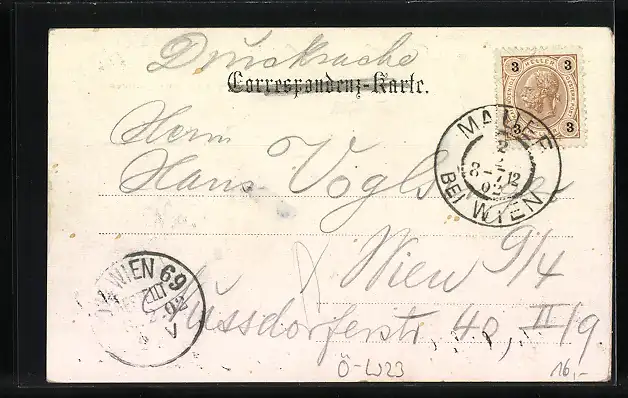 Drucksache
Correspondenz-Karte.
3 HELLER 3
3 3
Herrn
Hans
MAUER
BEI WIEN
8-12
02
Wien 9/4
Nussdorferstr, 40, II/9
WIEN 69
III
02
V
Ö-W23
16,-